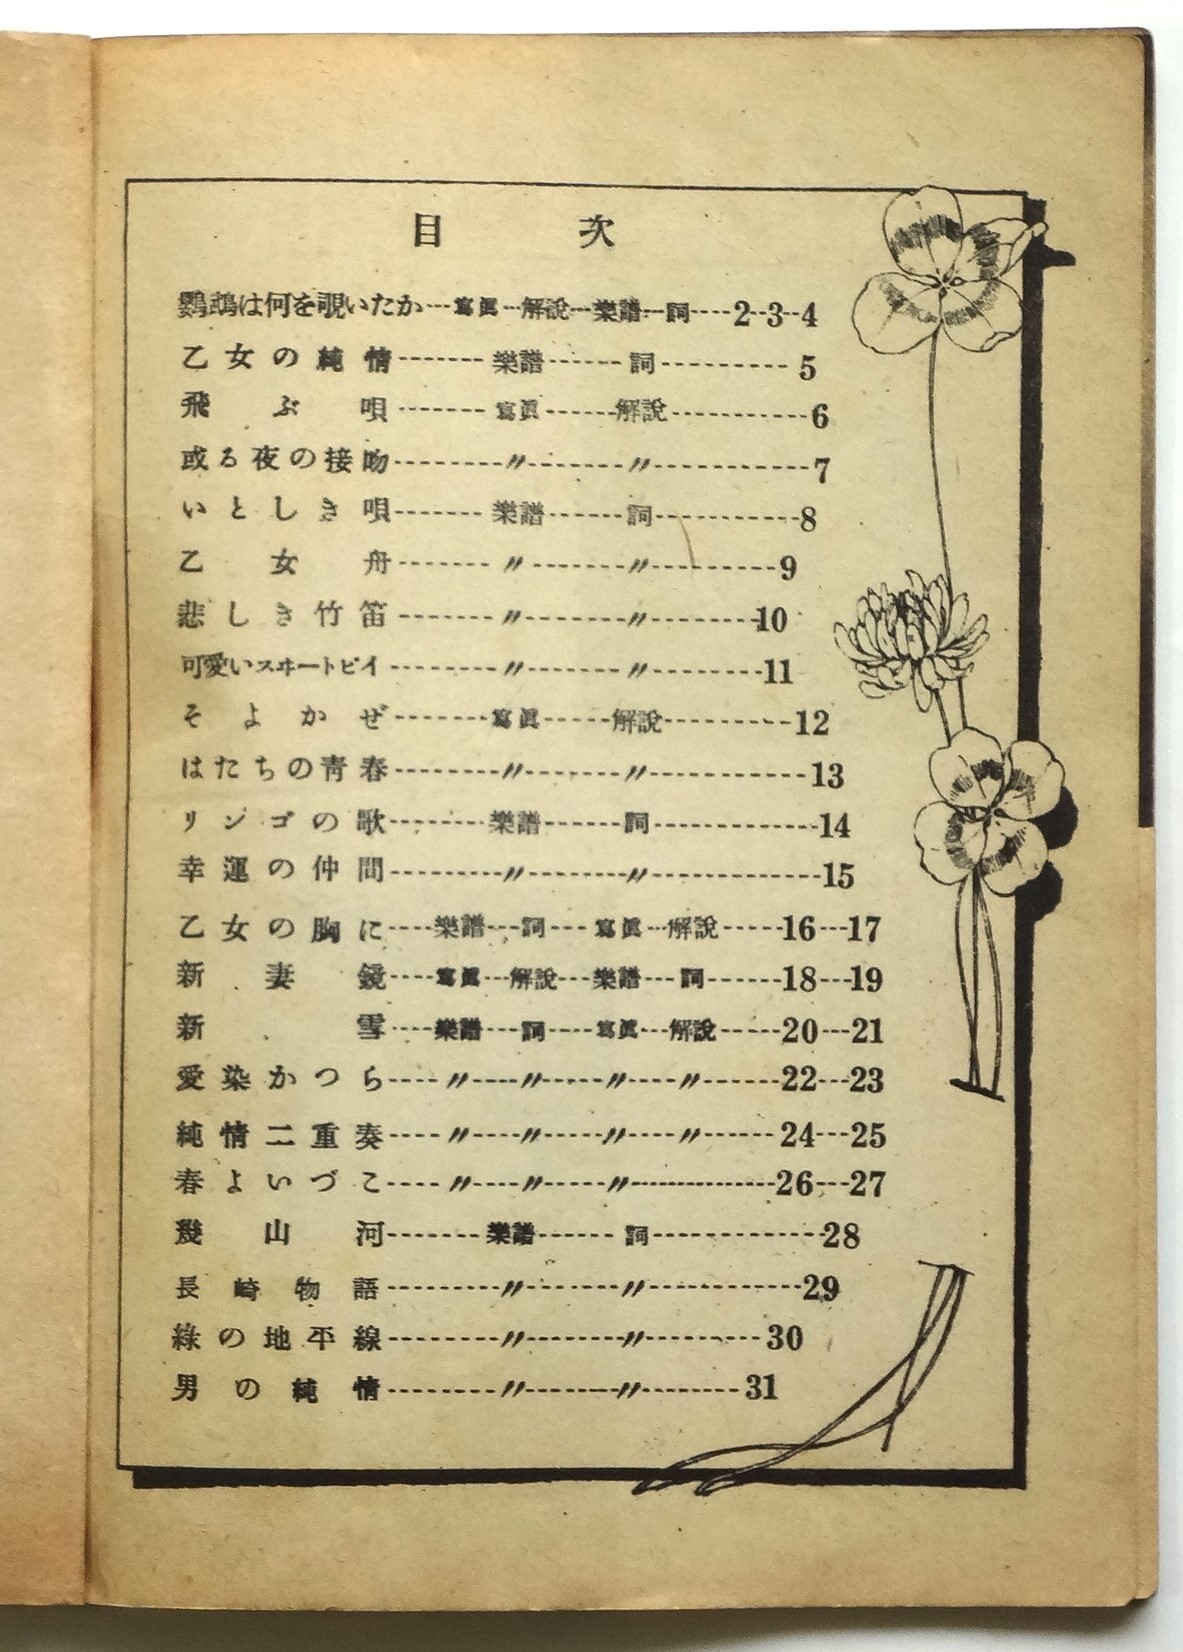 目次
鸚鵡は何を覗いたか---寫眞---解說---樂譜---詞----2--3--4
乙女の純情-------樂譜------詞---------5
飛ぶ唄-------寫眞------解說-----------6
或る夜の接吻--------〃-------〃-----------7
いとしき唄-------樂譜------詞----------8
乙女舟-------〃-------〃---------9
悲しき竹笛--------〃-------〃---------10
可愛いスヰートピイ--------〃-------〃---------11
そよかぜ-------寫眞-----解說----------12
はたちの靑春--------〃-------〃-----------13
リンゴの歌--------樂譜------詞------------14
幸運の仲間---------〃-------〃------------15
乙女の胸に----樂譜---詞---寫眞---解說-----16---17
新妻鏡----寫眞---解說---樂譜---詞------18---19
新雪----樂譜---詞----寫眞---解說-----20---21
愛染かつら----〃----〃-----〃----〃------22---23
純情二重奏----〃----〃-----〃----〃------24---25
春よいづこ----〃----〃-----〃------------26---27
幾山河-------樂譜------詞------------28
長崎物語---------〃-------〃----------29
綠の地平線--------〃-------〃--------30
男の純情--------〃-------〃-------31